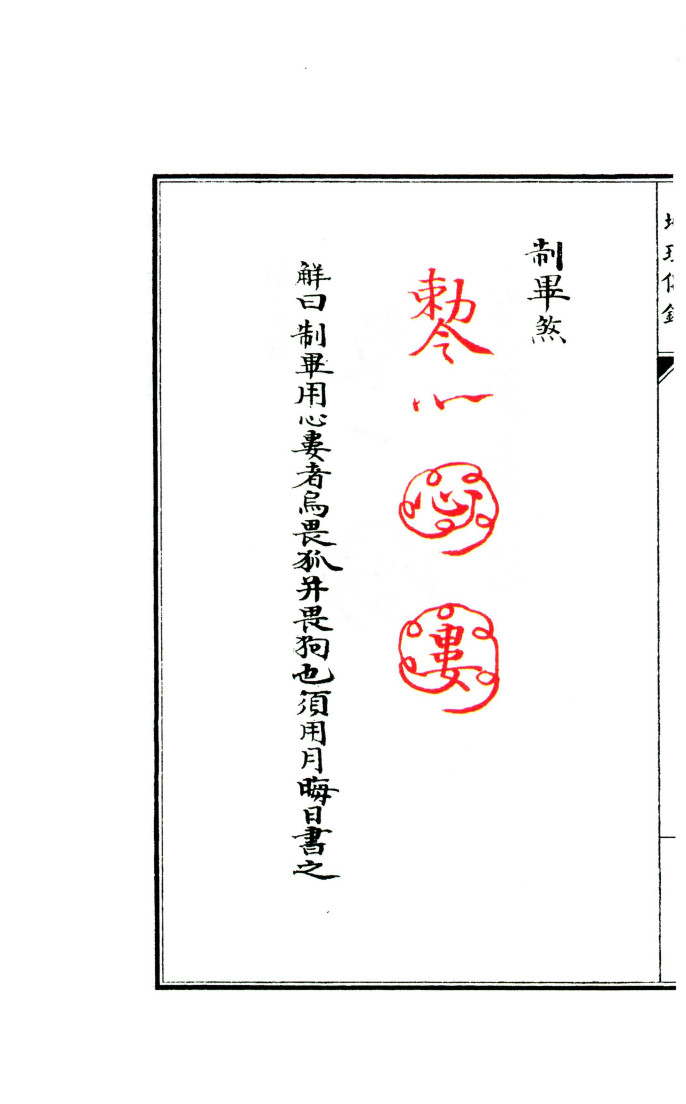 制畢煞
勅令
心
婁
解曰制畢用心婁者烏畏狐并畏狗也須用月晦日書之